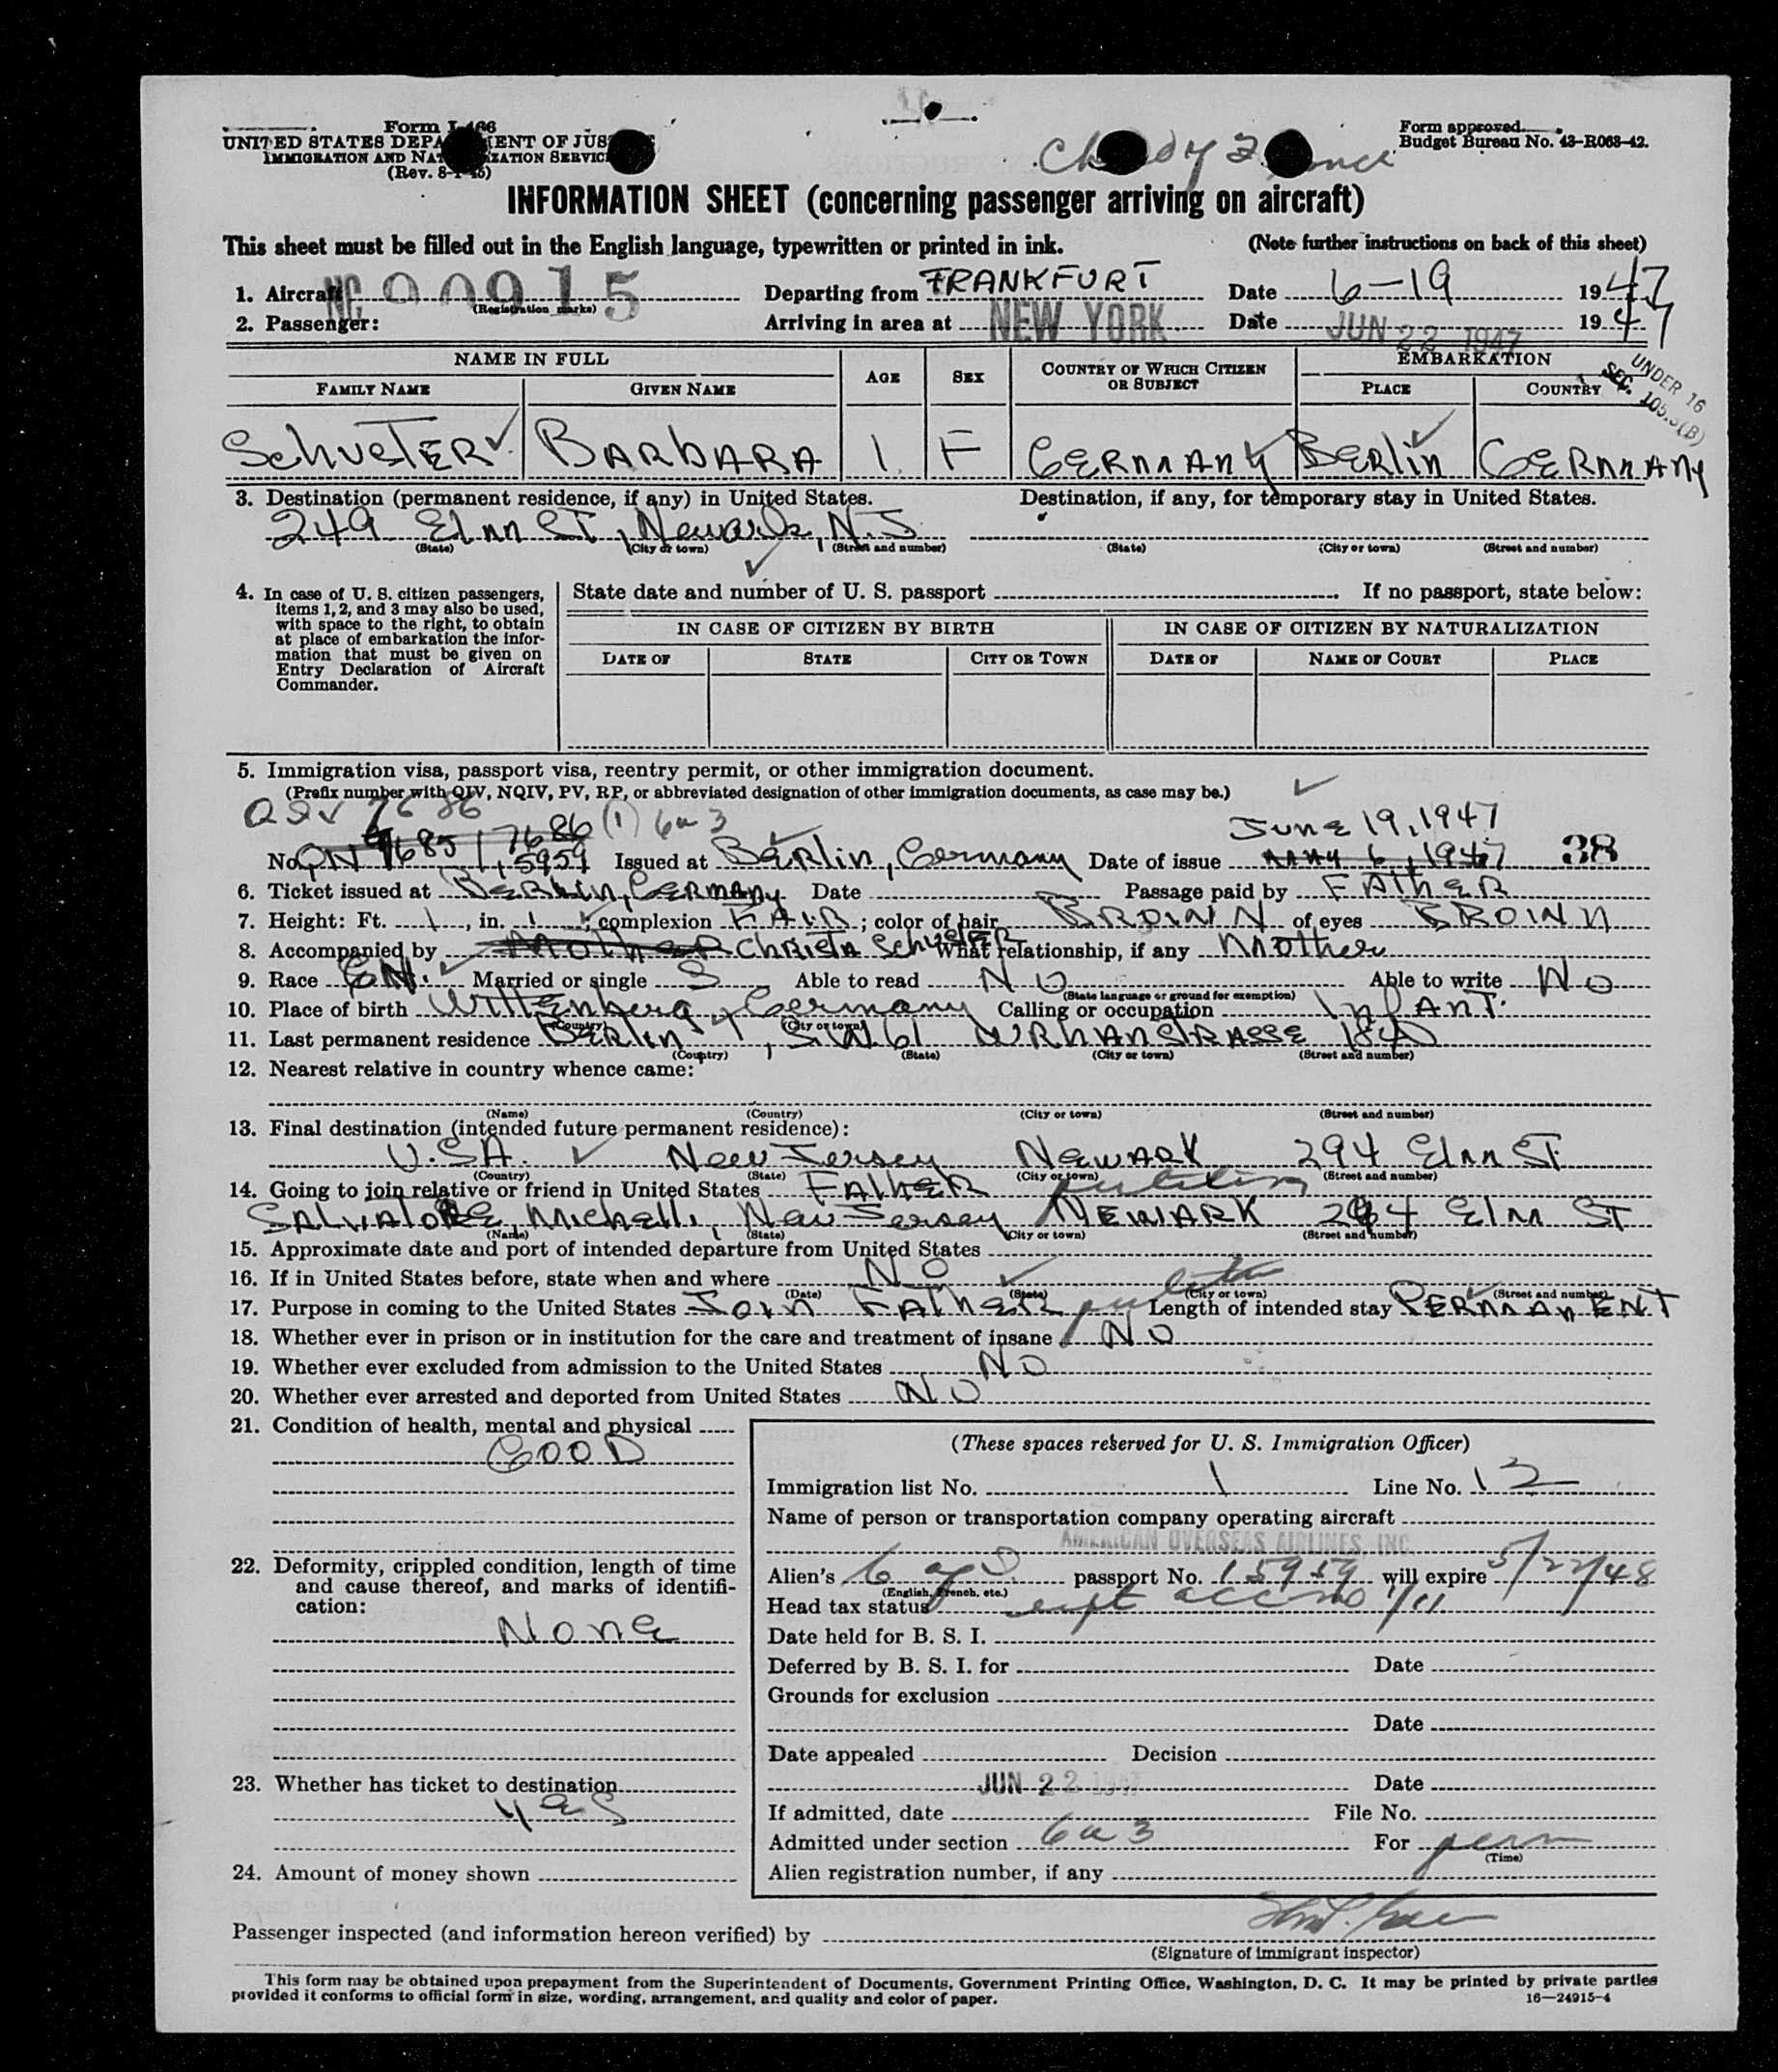 Form I-466
UNITED STATES DEPARTMENT OF JUSTICE
IMMIGRATION AND NATURALIZATION SERVICE
(Rev. 8-1-45)
Form approved.
Budget Bureau No. 43-R068-42.
INFORMATION SHEET (concerning passenger arriving on aircraft)
This sheet must be filled out in the English language, typewritten or printed in ink. (Note further instructions on back of this sheet)
1. Aircraft NC 90915 (Registration marks) Departing from FRANKFURT Date 6-19 1947
2. Passenger: Arriving in area at NEW YORK Date JUN 22 1947 1947
NAME IN FULL AGE SEX COUNTRY OF WHICH CITIZEN OR SUBJECT EMBARKATION
FAMILY NAME GIVEN NAME PLACE COUNTRY
UNDER 16
SEC. 105.3(B)
SCHUSTER BARBARA 1 F GERMANY BERLIN GERMANY
3. Destination (permanent residence, if any) in United States. Destination, if any, for temporary stay in United States.
249 Elm ST, Newark, N.J
(State) (City or town) (Street and number) (State) (City or town) (Street and number)
4. In case of U. S. citizen passengers, items 1, 2, and 3 may also be used, with space to the right, to obtain at place of embarkation the information that must be given on Entry Declaration of Aircraft Commander.
State date and number of U. S. passport If no passport, state below:
IN CASE OF CITIZEN BY BIRTH IN CASE OF CITIZEN BY NATURALIZATION
DATE OF STATE CITY OR TOWN DATE OF NAME OF COURT PLACE
5. Immigration visa, passport visa, reentry permit, or other immigration document.
(Prefix number with QIV, NQIV, PV, RP, or abbreviated designation of other immigration documents, as case may be.)
QIV 7686
7686 (1) 6a3 June 19, 1947
No. QN 7685 / 15959 Issued at Berlin, Germany Date of issue MAY 6, 1947 38
6. Ticket issued at BERLIN, GERMANY Date Passage paid by FATHER
7. Height: Ft. 1, in. 1; complexion FAIR; color of hair BROWN of eyes BROWN
8. Accompanied by MOTHER CHRISTA SCHUSTER What relationship, if any Mother
9. Race GN. Married or single S Able to read NO Able to write NO
(State language or ground for exemption)
10. Place of birth Wittenberg, Germany Calling or occupation INFANT.
(Country) (City or town)
11. Last permanent residence BERLIN, S.W.61 URBANSTRASSE 184
(Country) (State) (City or town) (Street and number)
12. Nearest relative in country whence came:
(Name) (Country) (City or town) (Street and number)
13. Final destination (intended future permanent residence):
U.S.A. New Jersey NEWARK 294 Elm ST.
(Country) (State) (City or town) (Street and number)
14. Going to join relative or friend in United States FATHER putative
SALVATORE, Michelli, New Jersey NEWARK 294 Elm ST
(Name) (State) (City or town) (Street and number)
15. Approximate date and port of intended departure from United States
16. If in United States before, state when and where NO
(Date) (State) (City or town) (Street and number)
17. Purpose in coming to the United States JOIN FATHER putative Length of intended stay PERMANENT
18. Whether ever in prison or in institution for the care and treatment of insane NO
19. Whether ever excluded from admission to the United States NO
20. Whether ever arrested and deported from United States NO
21. Condition of health, mental and physical
GOOD
22. Deformity, crippled condition, length of time and cause thereof, and marks of identification:
None
23. Whether has ticket to destination
yes
24. Amount of money shown
(These spaces reserved for U. S. Immigration Officer)
Immigration list No. 1 Line No. 12
Name of person or transportation company operating aircraft
AMERICAN OVERSEAS AIRLINES, INC
Alien's passport No. 15959 will expire 5/22/48
(English, French, etc.)
Head tax status
Date held for B. S. I.
Deferred by B. S. I. for Date
Grounds for exclusion
Date
Date appealed Decision
JUN 22 1947 Date
If admitted, date File No.
Admitted under section 6a3 For perm
(Time)
Alien registration number, if any
Passenger inspected (and information hereon verified) by
(Signature of immigrant inspector)
This form may be obtained upon prepayment from the Superintendent of Documents, Government Printing Office, Washington, D. C. It may be printed by private parties
provided it conforms to official form in size, wording, arrangement, and quality and color of paper. 16—24915-4